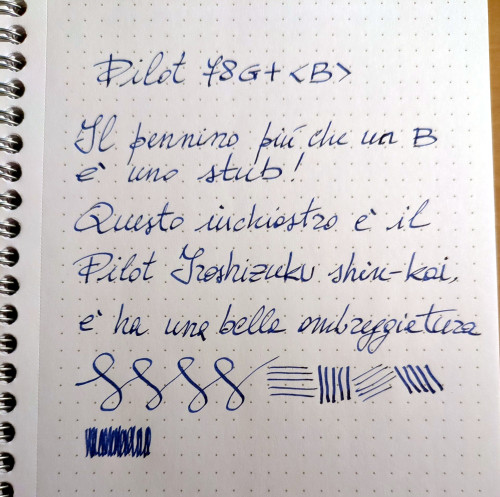 Pilot 78G+ <B>
Il pennino piú che un B
è uno stub!
Questo inchiostro è il
Pilot Iroshizuku shin-kai,
e ha una bella ombreggiatura